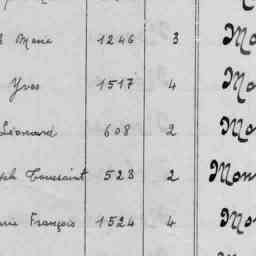 Marie 1246 3 Mo
Yves 1517 4 Mo
Léonard 608 2 Mo
Toussaint 523 2 Mon
François 1524 4 Mo